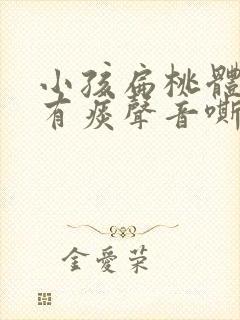 小孩扁桃體
有痰聲音嘶
金愛荣